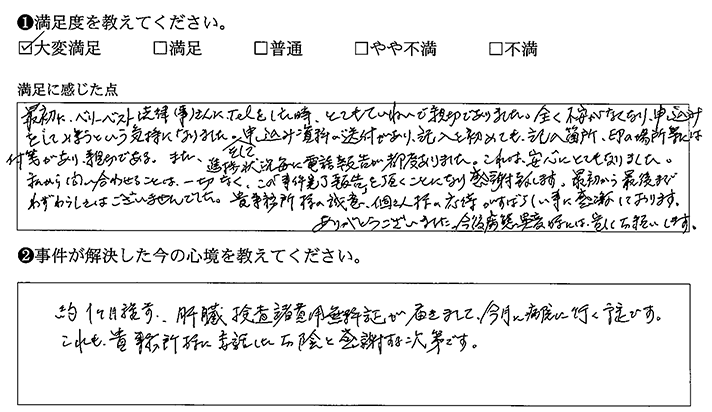 ❶満足度を教えてください。
☑大変満足 □満足 □普通 □やや不満 □不満
満足に感じた点
最初に、ベリーベスト法律(事)さんにTelをした時、とてもていねいで親切でありました。全く不安がなくなり、申込み
をしてみようという気持になりました。申込み資料の送付があり、記入も初めても、記入箇所、印の場所等には
付箋があり、親切である。また、進捗状況毎に電話報告が都度ありました。これは、安心にとてもなりました。
そして
私から問い合わせることは、一切なく、この事件完了報告を頂くことになり感謝致します。最初から最後まで
わずわらしさはございませんでした。貴事務所様の誠意、個々人様の応待がすばらしい事に感謝しております。
ありがとうございました。今後病態異変時には、宜しくお願いします。
❷事件が解決した今の心境を教えてください。
約1ヶ月経ず、肝臓検査諸費用無料証が届きまして、今月に病院に行く予定です。
これも、貴事務所様に委託したお陰と感謝する次第です。